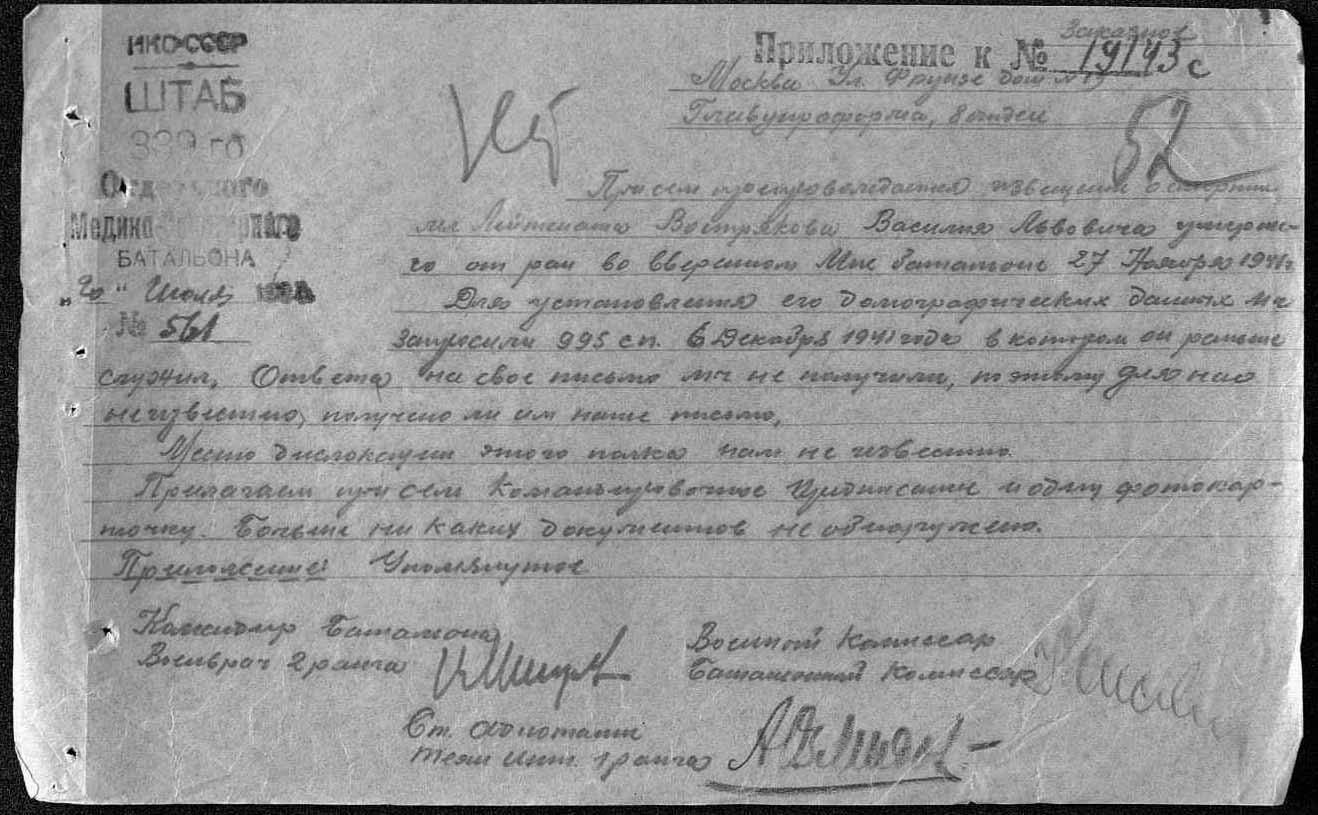 НКО-СССР
ШТАБ
339 го
Отдельного
Медико-Санитарного
БАТАЛЬОНА
"20" Июля
№ 561
Приложение к № 19143 с
Москва Ул. Фрунзе дом № 19
Главупраформа, 8 отдел
52
При сем препровождается извещение о смерти
мл Лейтенанта Вострякова Василия Львовича умерше-
го от ран во вверенном Мне батальоне 27 Ноября 1941г
Для установления его домографических данных мы
запросили 995 сп. 6 Декабря 1941 года в котором он раньше
служил, Ответа на свое письмо мы не получили, поэтому для нас
неизвестно, получено ли им наше письмо,
Место дислокации этого полка нам не известно.
Прилагаем при сем Командировочное Предписание и одну фотокар-
точку. Больше ни каких документов не обнаружено.
Приложение: Упомянутое
Командир Батальона
Военврач 2 ранга
Военной Комиссар
Батальонный Комиссар
Ст. Адьютант
Техн Инт. 1 ранга